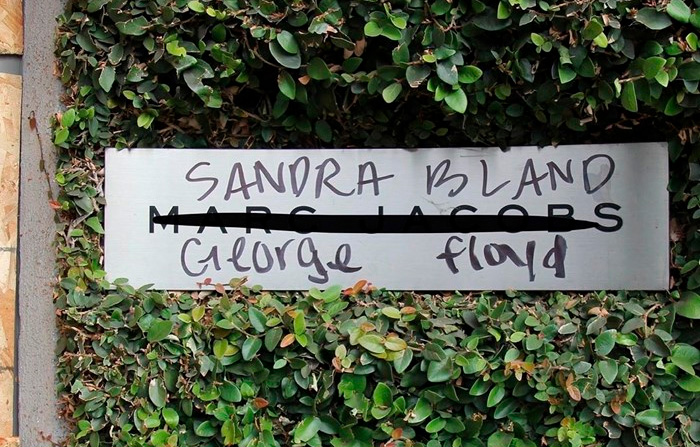 SANDRA BLAND
MARC JACOBS
George floyd